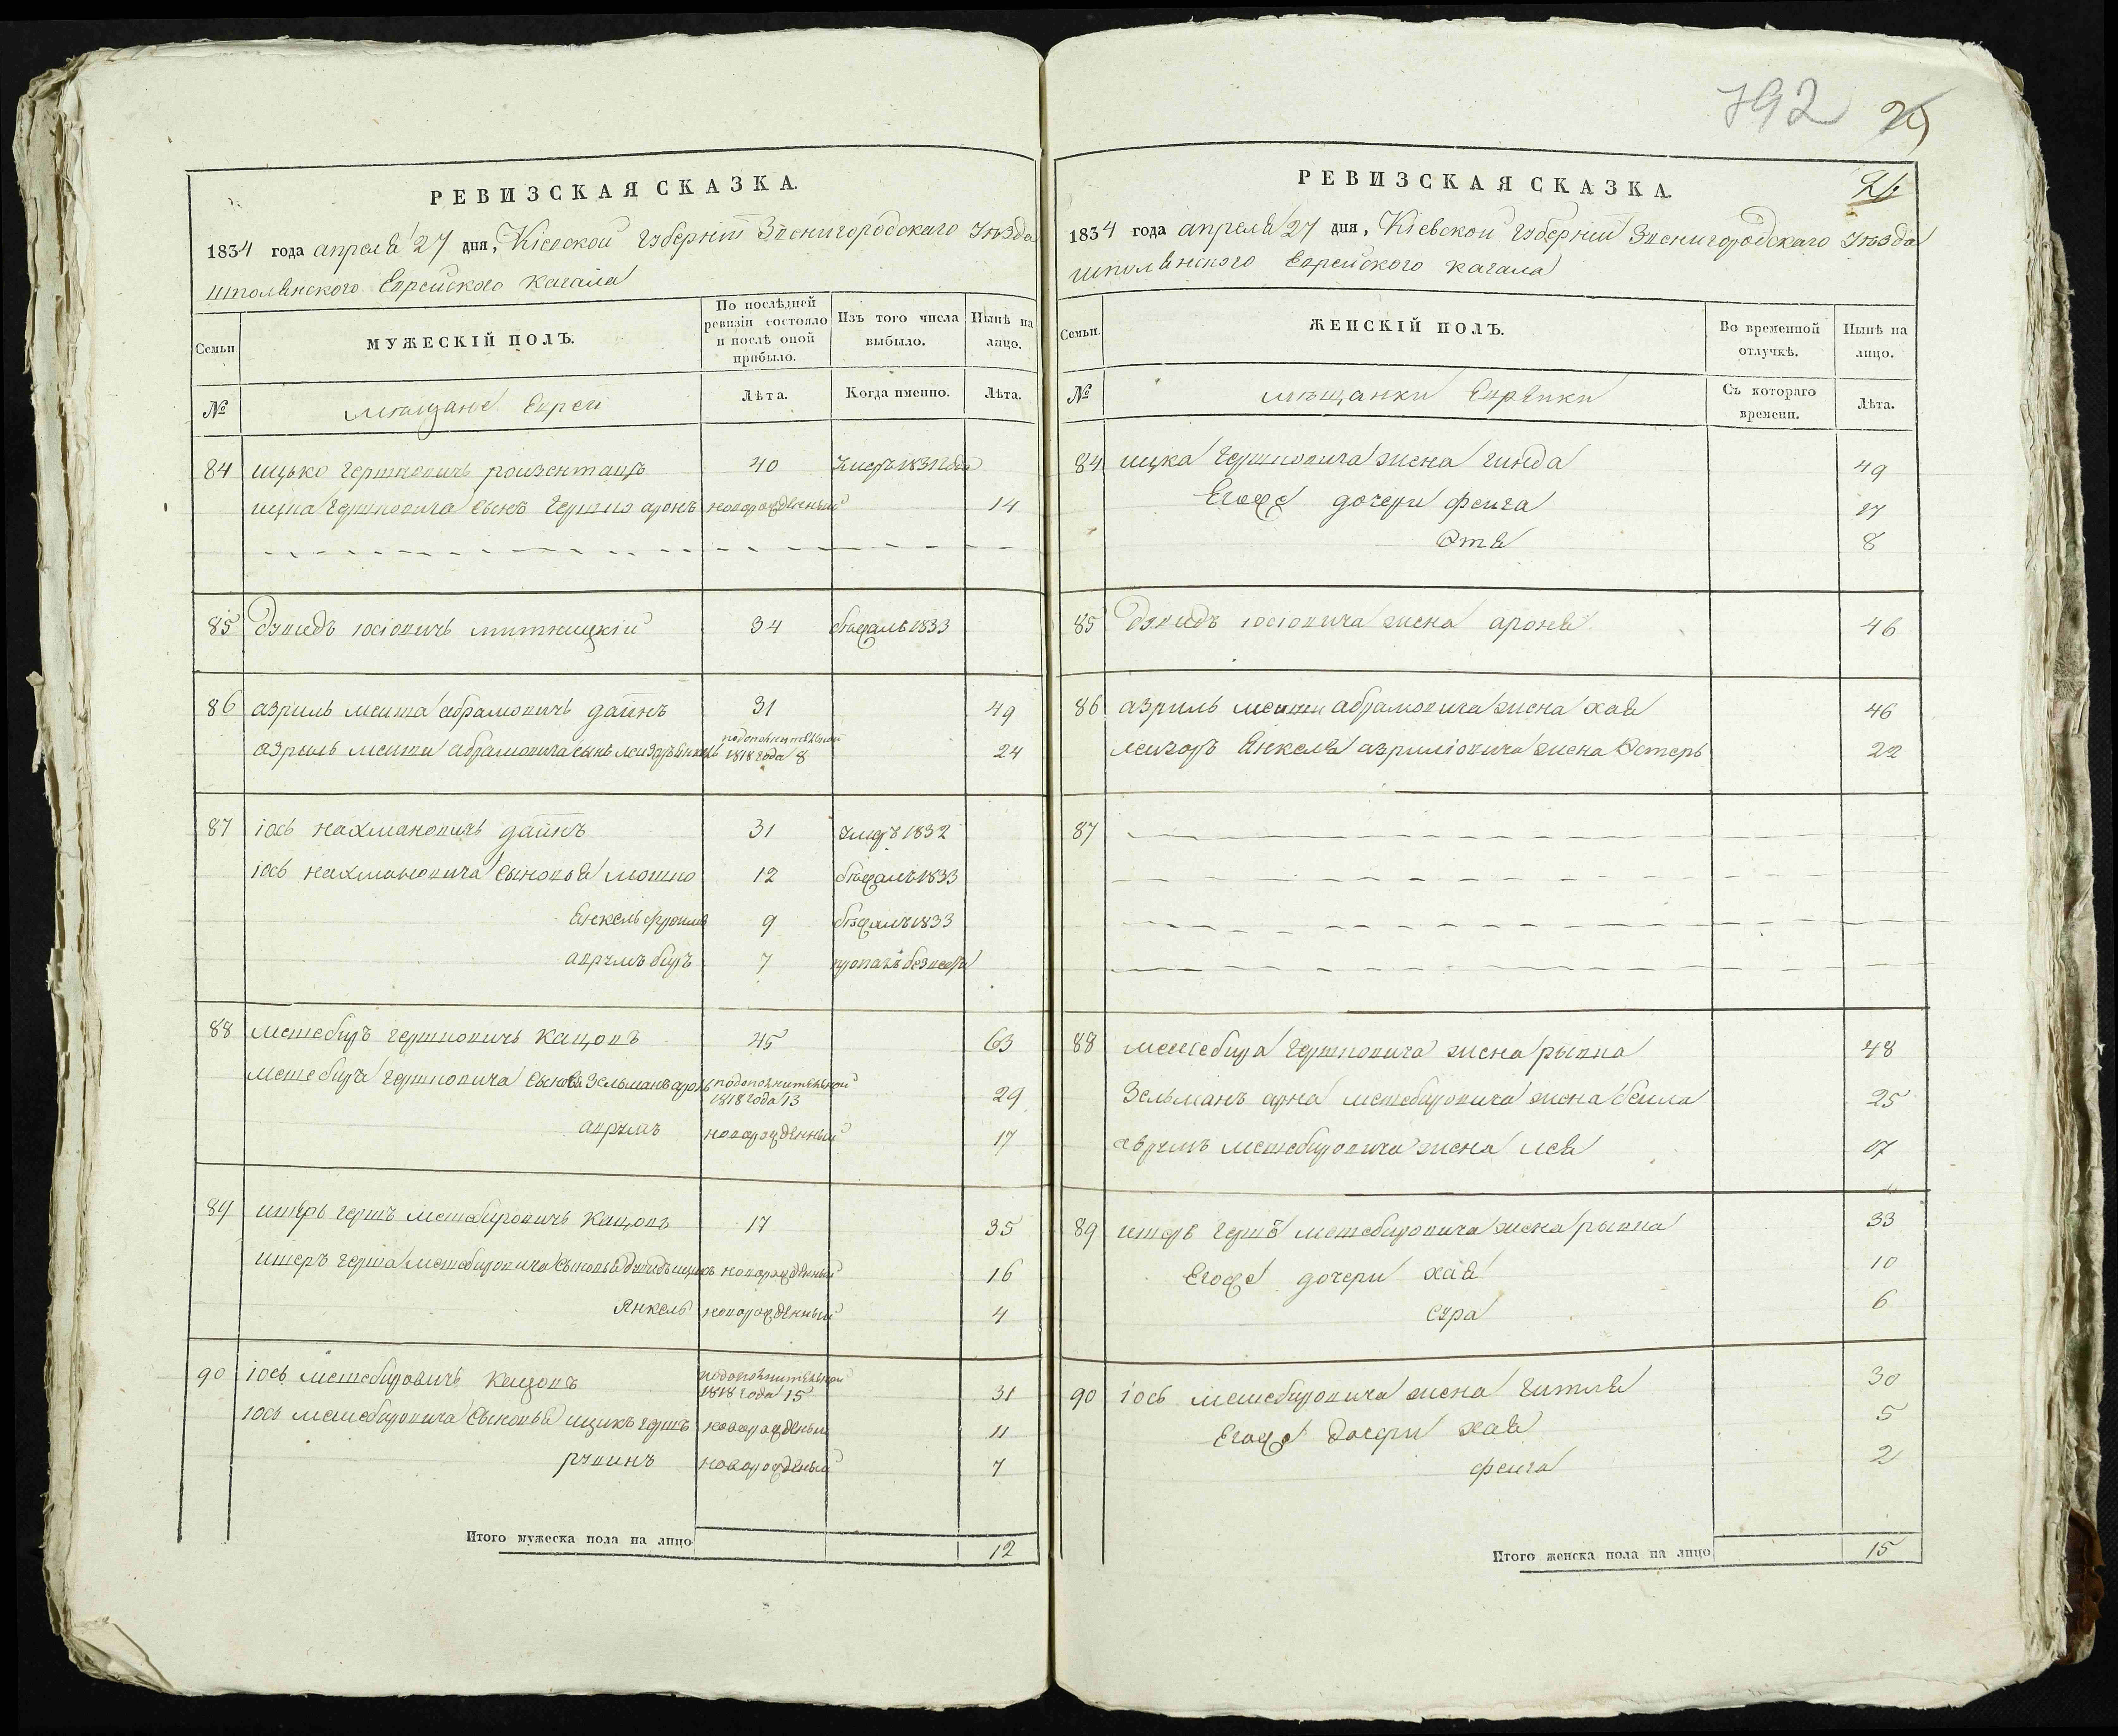 РЕВИЗСКАЯ СКАЗКА.
1834 года апреля 27 дня, Кіевской губерніи Звенигородскаго уѣзда
шполянского Еврейского кагала
Семьи
МУЖЕСКІЙ ПОЛЪ.
По послѣдней ревизіи состояло и послѣ оной прибыло.
Изъ того числа выбыло.
Нынѣ на лицо.
№
мѣщане Евреи
Лѣта.
Когда именно.
Лѣта.
84 ицько гершковичъ 40 умеръ 1831 года
ицка гершковича сынъ гершко аронъ новорожденный 14
85 дувидъ іосіовичъ митницкій 34 бѣжалъ 1833
86 азриль меита абрамовичъ даинъ 31 49
азриль меити абрамовича сынъ подополнительной 1818 года 8 24
87 іось нахмановичъ даинъ 31 умеръ 1832
іось нахмановича сыновья мошко 12 бѣжалъ 1833
Янкель фроимъ 9 бѣжалъ 1833
аврумъ беръ 7 пропалъ без вести
88 мешеберъ гершковичъ кацовъ 45 63
мешебера гершковича сыновья Зельманъ аронъ подополнительной 1818 года 13 29
аврумъ новорожденный 17
89 штеръ гершъ мешеберовичъ кацовъ 17 35
штеръ герша мешеберовича сыновья дувидъ ицикъ новорожденный 16
Янкель новорожденный 4
90 іось мешеберовичъ кацовъ подополнительной 1818 года 15 31
іось мешеберовича сыновья ицикъ гершъ новорожденный 11
рувинъ новорожденный 7
Итого мужеска пола на лицо 12
792
24
РЕВИЗСКАЯ СКАЗКА.
1834 года апреля 27 дня, Кіевской губерніи Звенигородскаго уѣзда
шполянского Еврейского кагала
Семьи.
ЖЕНСКІЙ ПОЛЪ.
Во временной отлучкѣ.
Нынѣ на лицо.
№
мѣщанки Еврейки
Съ котораго времени.
Лѣта.
84 ицка гершковича жена гинда 49
Егоже дочери феига 17
Этя 8
85 дувидъ іосіовича жена ароня 46
86 азриль меити абрамовича жена хая 46
Янкеля азриліовича жена Эстеръ 22
87
88 мешебера гершковича жена рывка 48
Зельманъ арна мешеберовича жена беила 25
аврумъ мешеберовича жена лея 17
89 штеръ герша мешеберовича жена рывка 33
Егоже дочери хая 10
сура 6
90 іось мешеберовича жена гитля 30
Егоже дочери хая 5
феига 2
Итого женска пола на лицо 15